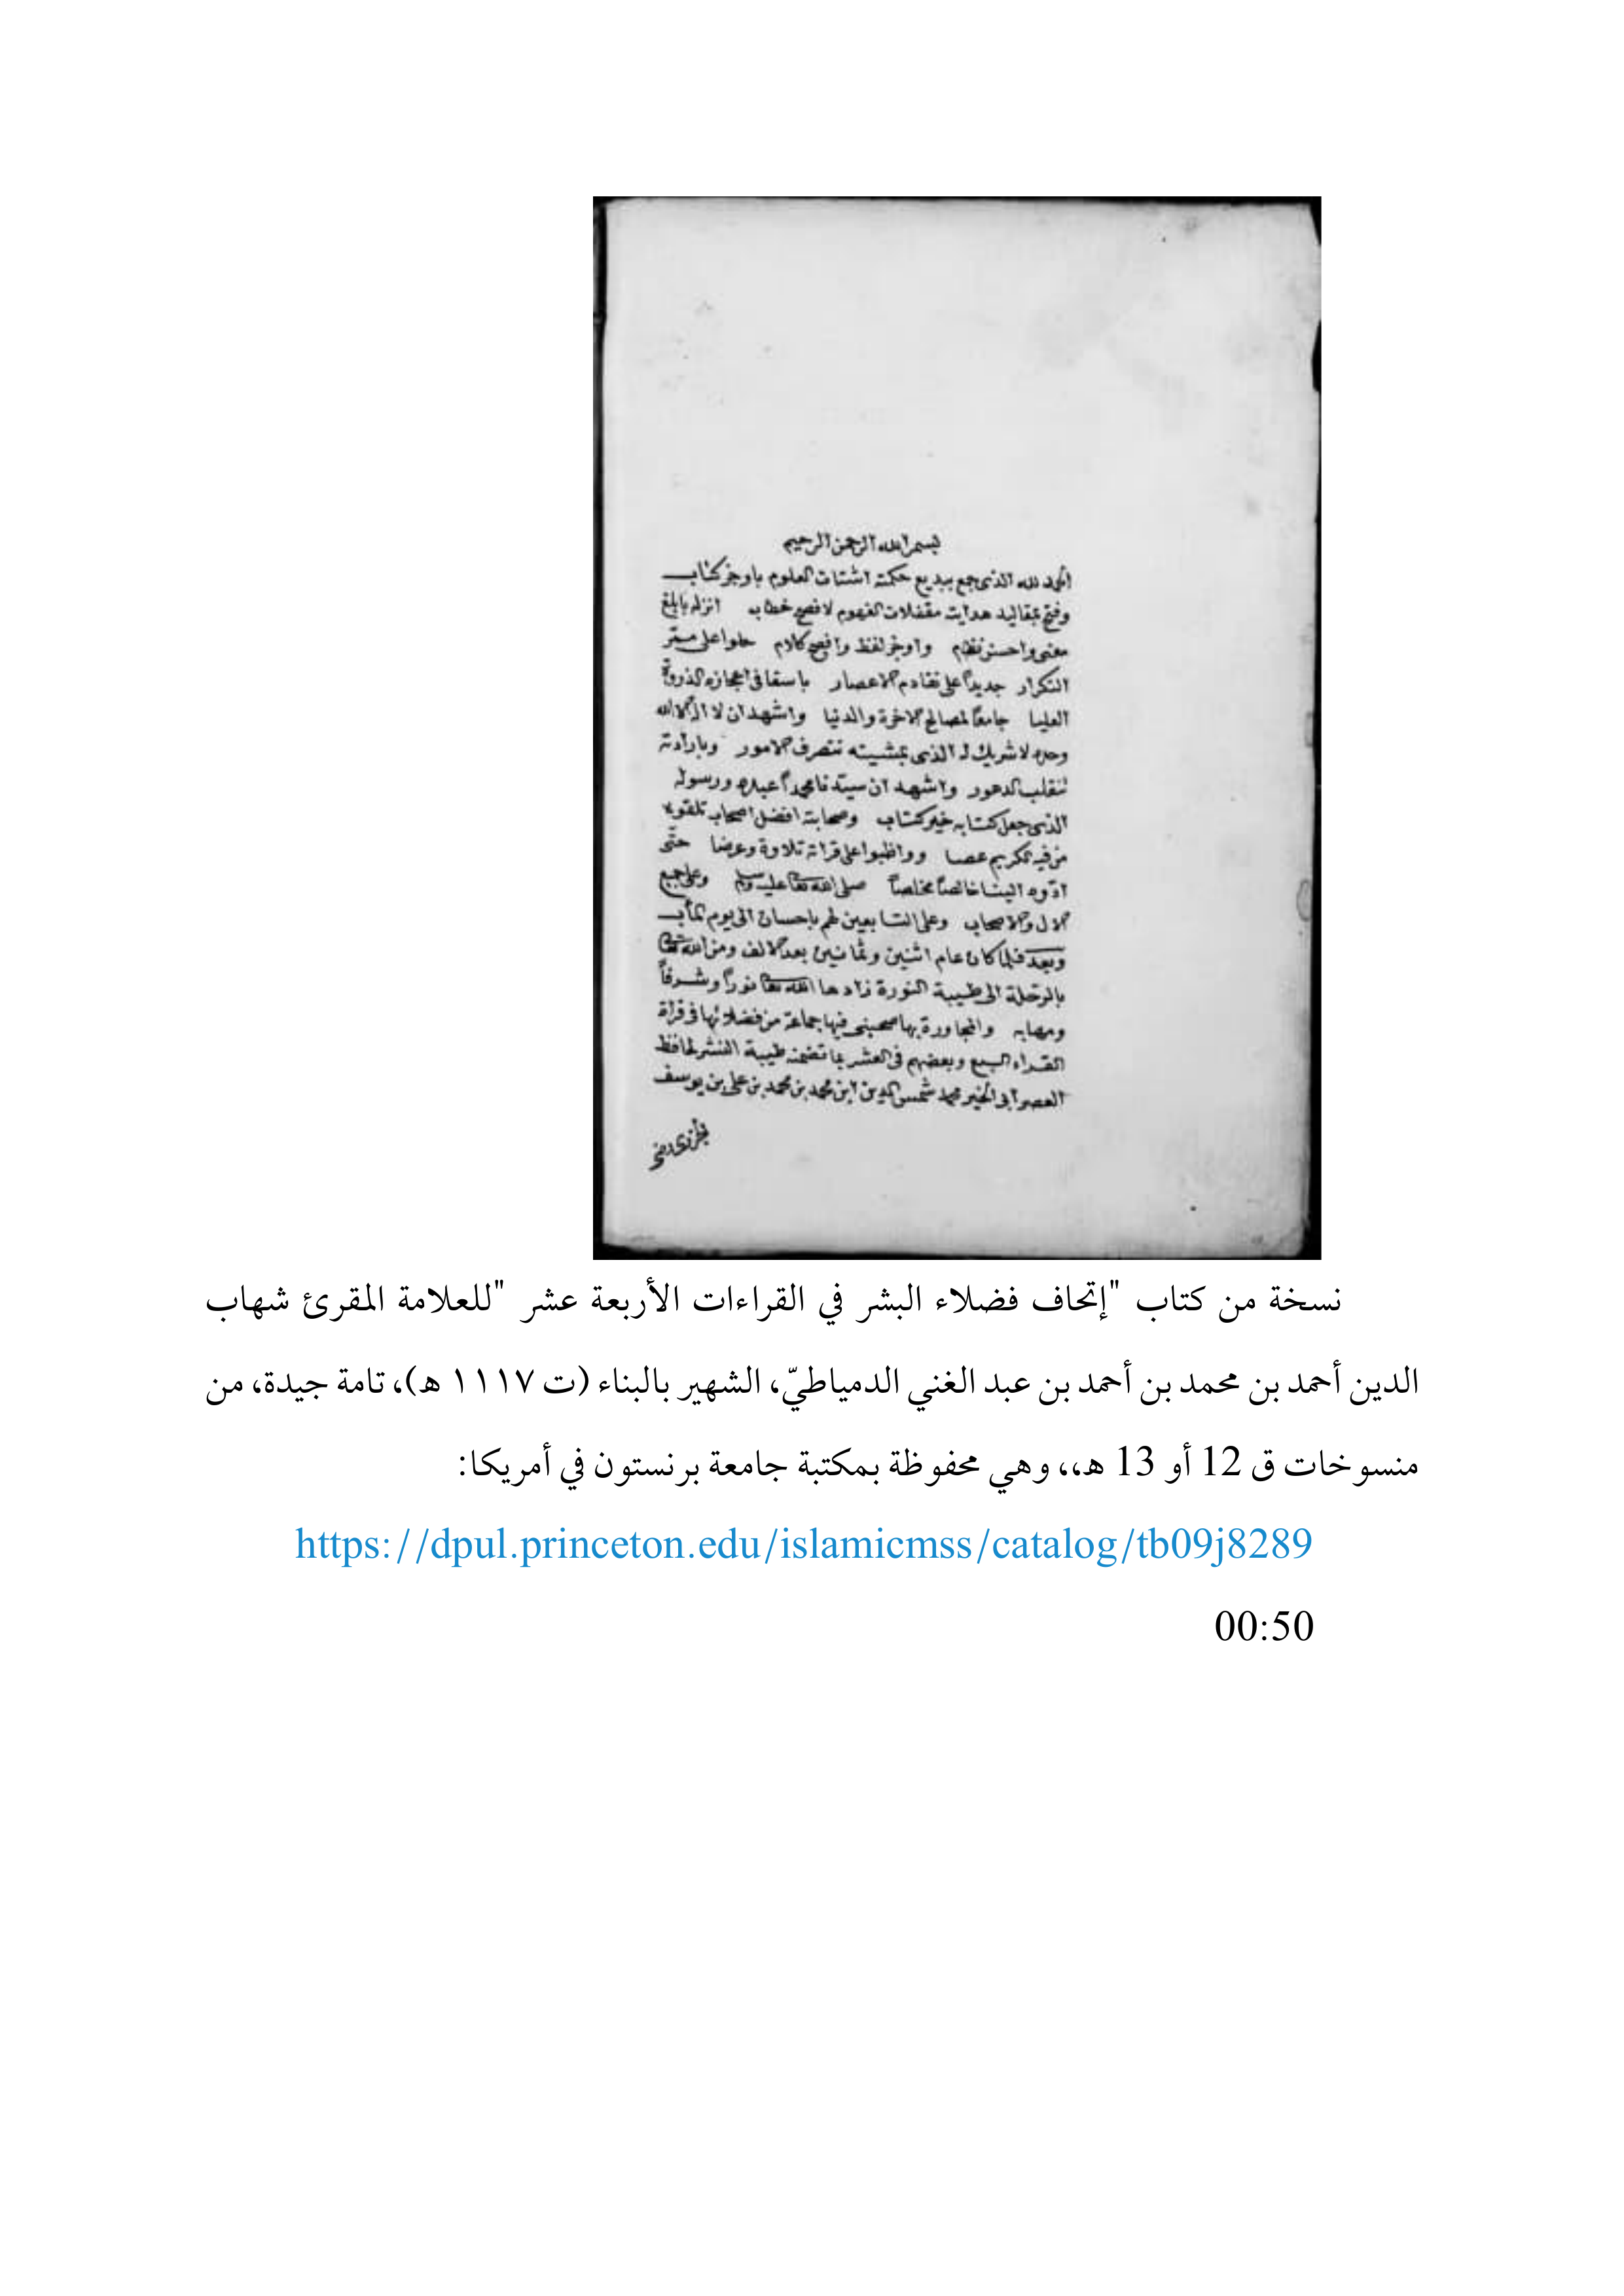 بسم الله الرحمن الرحيم
الحمد لله الذى جمع ببديع حكمته اشتات العلوم باوجز كتاب
وفتح بمقاليد هدايته مقفلات الفهوم لافصح خطاب انزله بابلغ
معنى واحسن نظام واوجز لفظ وافصح كلام حلوا على ممر
التكرار جديداً على تقادم الاعصار باسقا فى اعجازه الذروة
العليا جامعاً لمصالح الاخرة والدنيا واشهد ان لا اله الا الله
وحده لا شريك له الذى بمشيته تتصرف الامور وبارادته
تنقلب الدهور واشهد ان سيدنا محمداً عبده ورسوله
الذى جعل كتابه خير كتاب وصحابته افضل اصحاب تلقوه
من فيه الكريم غضا وواظبوا على قراته تلاوة وعرضا حتى
ادوه الينا خالصاً مخلصاً صلى الله تعالى عليه وسلم وعلى جميع
الال والاصحاب وعلى التابعين لهم باحسان الى يوم المأب
وبعد فلما كان عام اثنين وثمانين بعد الالف ومن الله تعالى
بالرحلة الى طيبة المنورة زادها الله تعالى نوراً وشرفاً
ومهابه والمجاورة بها صحبنى فيها جماعة من فضلائها فى قراة
القراء السبع وبعضهم فى العشر بما تضمنه طيبة النشر لحافظ
العصر ابى الخير محمد شمس الدين ابن محمد بن محمد بن على بن يوسف
الجزرى
نسخة من كتاب "إتحاف فضلاء البشر في القراءات الأربعة عشر "للعلامة المقرئ شهاب
الدين أحمد بن محمد بن أحمد بن عبد الغني الدمياطيّ، الشهير بالبناء (ت ١١١٧ هـ)، تامة جيدة، من
منسوخات ق 12 أو 13 هـ،، وهي محفوظة بمكتبة جامعة برنستون في أمريكا:
https://dpul.princeton.edu/islamicmss/catalog/tb09j8289
00:50